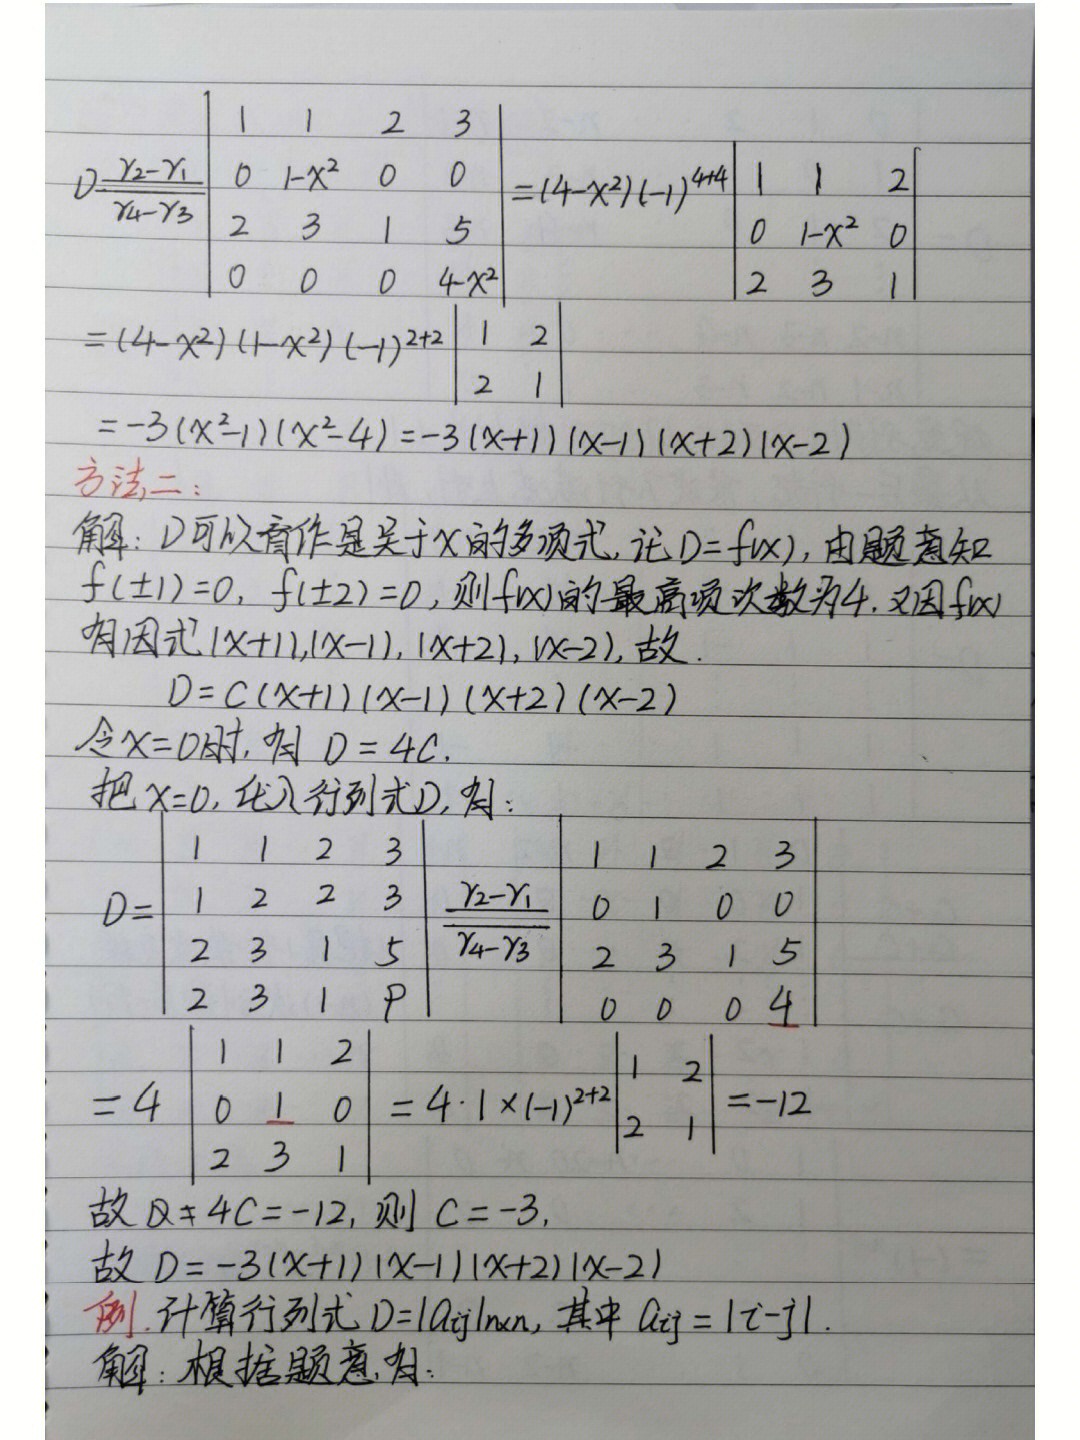 D \frac{r_2-r_1}{r_4-r_3} \begin{vmatrix} 1 & 1 & 2 & 3 \\ 0 & 1-x^2 & 0 & 0 \\ 2 & 3 & 1 & 5 \\ 0 & 0 & 0 & 4-x^2 \end{vmatrix} = (4-x^2)(-1)^{4+4} \begin{vmatrix} 1 & 1 & 2 \\ 0 & 1-x^2 & 0 \\ 2 & 3 & 1 \end{vmatrix}
= (4-x^2)(1-x^2)(-1)^{2+2} \begin{vmatrix} 1 & 2 \\ 2 & 1 \end{vmatrix}
= -3(x^2-1)(x^2-4) = -3(x+1)(x-1)(x+2)(x-2)
方法二:
解: D可以看作是关于x的多项式, 记D=f(x), 由题意知
f(±1)=0, f(±2)=0, 则f(x)的最高项次数为4. 又因f(x)
有因式(x+1),(x-1), (x+2), (x-2), 故.
D=C(x+1)(x-1)(x+2)(x-2)
令x=0时, 有 D=4C.
把x=0, 代入行列式D, 有:
D= \begin{vmatrix} 1 & 1 & 2 & 3 \\ 1 & 2 & 2 & 3 \\ 2 & 3 & 1 & 5 \\ 2 & 3 & 1 & 9 \end{vmatrix} \frac{r_2-r_1}{r_4-r_3} \begin{vmatrix} 1 & 1 & 2 & 3 \\ 0 & 1 & 0 & 0 \\ 2 & 3 & 1 & 5 \\ 0 & 0 & 0 & 4 \end{vmatrix}
= 4 \begin{vmatrix} 1 & 1 & 2 \\ 0 & 1 & 0 \\ 2 & 3 & 1 \end{vmatrix} = 4·1×(-1)^{2+2} \begin{vmatrix} 1 & 2 \\ 2 & 1 \end{vmatrix} = -12
故 D=4C=-12, 则 C=-3,
故 D=-3(x+1)(x-1)(x+2)(x-2)
例. 计算行列式 D=|a_{ij}|_{n×n}, 其中 a_{ij}=|i-j|.
解: 根据题意, 有: